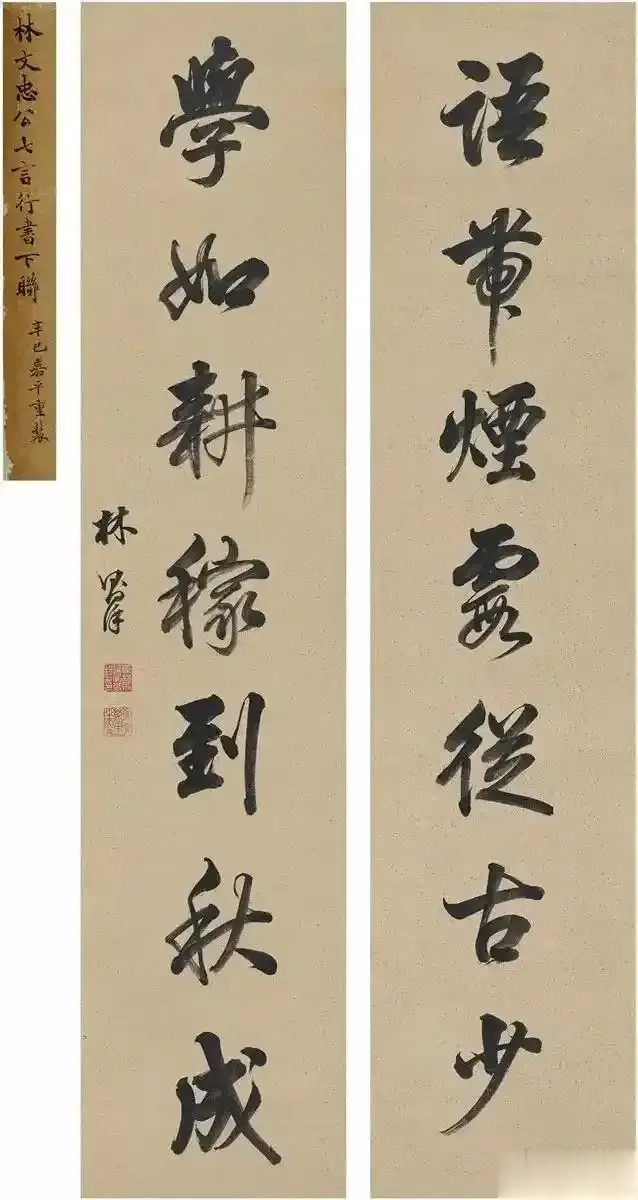 語帶煙霞從古少
學如耕稼到秋成
林則徐
林文忠公七言行書下聯 辛巳嘉平重裝